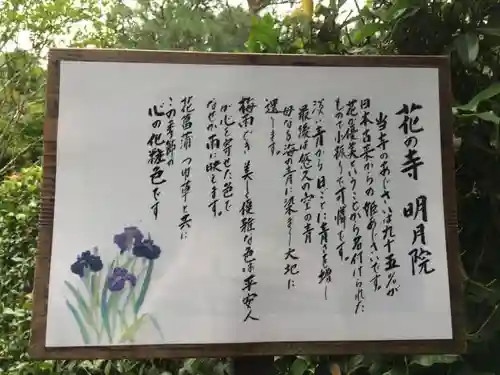 花の寺 明月院
当寺のあじさいは九十五%が
日本古来からの姫あじさいです。
花の優美ということから名付けられた
もの小振りで可憐です。
淡い青から日ごとに青さを増し
最後は悠久の空の青
母なる海の青に染まり大地に
還ります。
梅雨どき美しく優雅な色は平安人
が心を寄せた色で
なぜか雨に映えます。
花菖蒲つゆ草と共に
この季節の
心の化粧色です